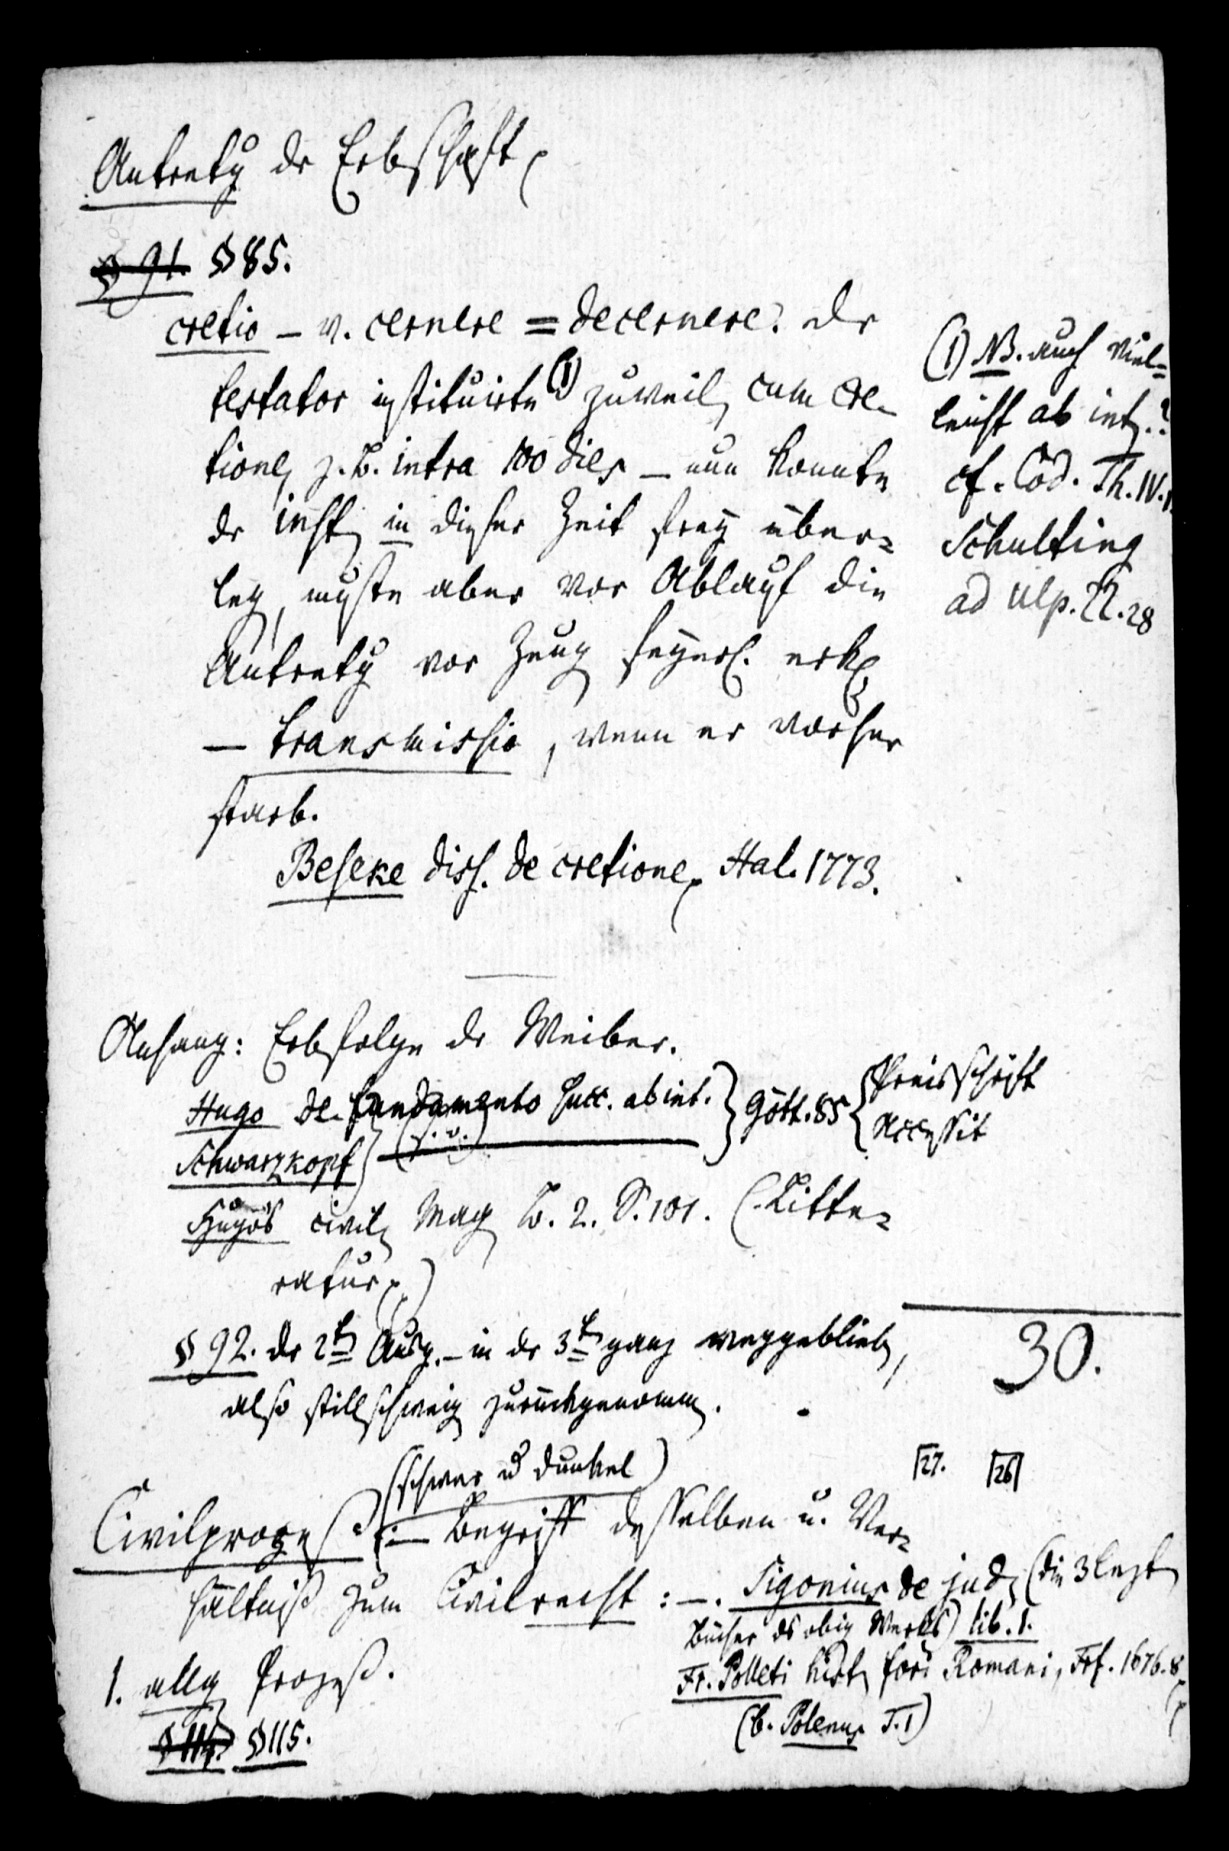 Antretg der Erbschaft
§ 91. § 85.
cretio – v. cernere = decernere: der
testator instituirte (1) zuweilen cum cre-
tione z. B. intra 100 dies – nun konnte
der inst. in dieser Zeit frey über-
legen, muste aber vor Ablauf die
Antretg vor Zeugen feyerl. erkl.
– transmissio, wenn er vorher
starb.
Beseke diss. de cretione Hal. 1773.
(1) NB. auch viel-
leicht ab int.?
cf. Cod. Th. IV. 1.
Schulting
ad Ulp. 22. 28
Anhang: Erbfolge der Weiber.
Hugo de fundamento succ. ab int. } Gött. 85 { Preisschrift
Schwarzkopf } (s. v.) Accessit
Hugo's civil. Mag. B. 2. S. 101. (Litte-
ratur)
§ 92. der 2t Ausg. – in der 3t ganz weggeblieben,
also stillschweig zurückgenommen.
30.
(schwer u dunkel)
27. 26
Civilprozeß : – Begriff desselben u. Ver-
hältniß zum Civilrecht : –. Sigonius de jud. (die 3 lezten
Bücher des obig Werks) lib. 1.
Fr. Polleti hist. fori Romani, Frf. 1676. 8
(b. Polenus T. 1)
1. allg Prozeß.
§ 114. § 115.